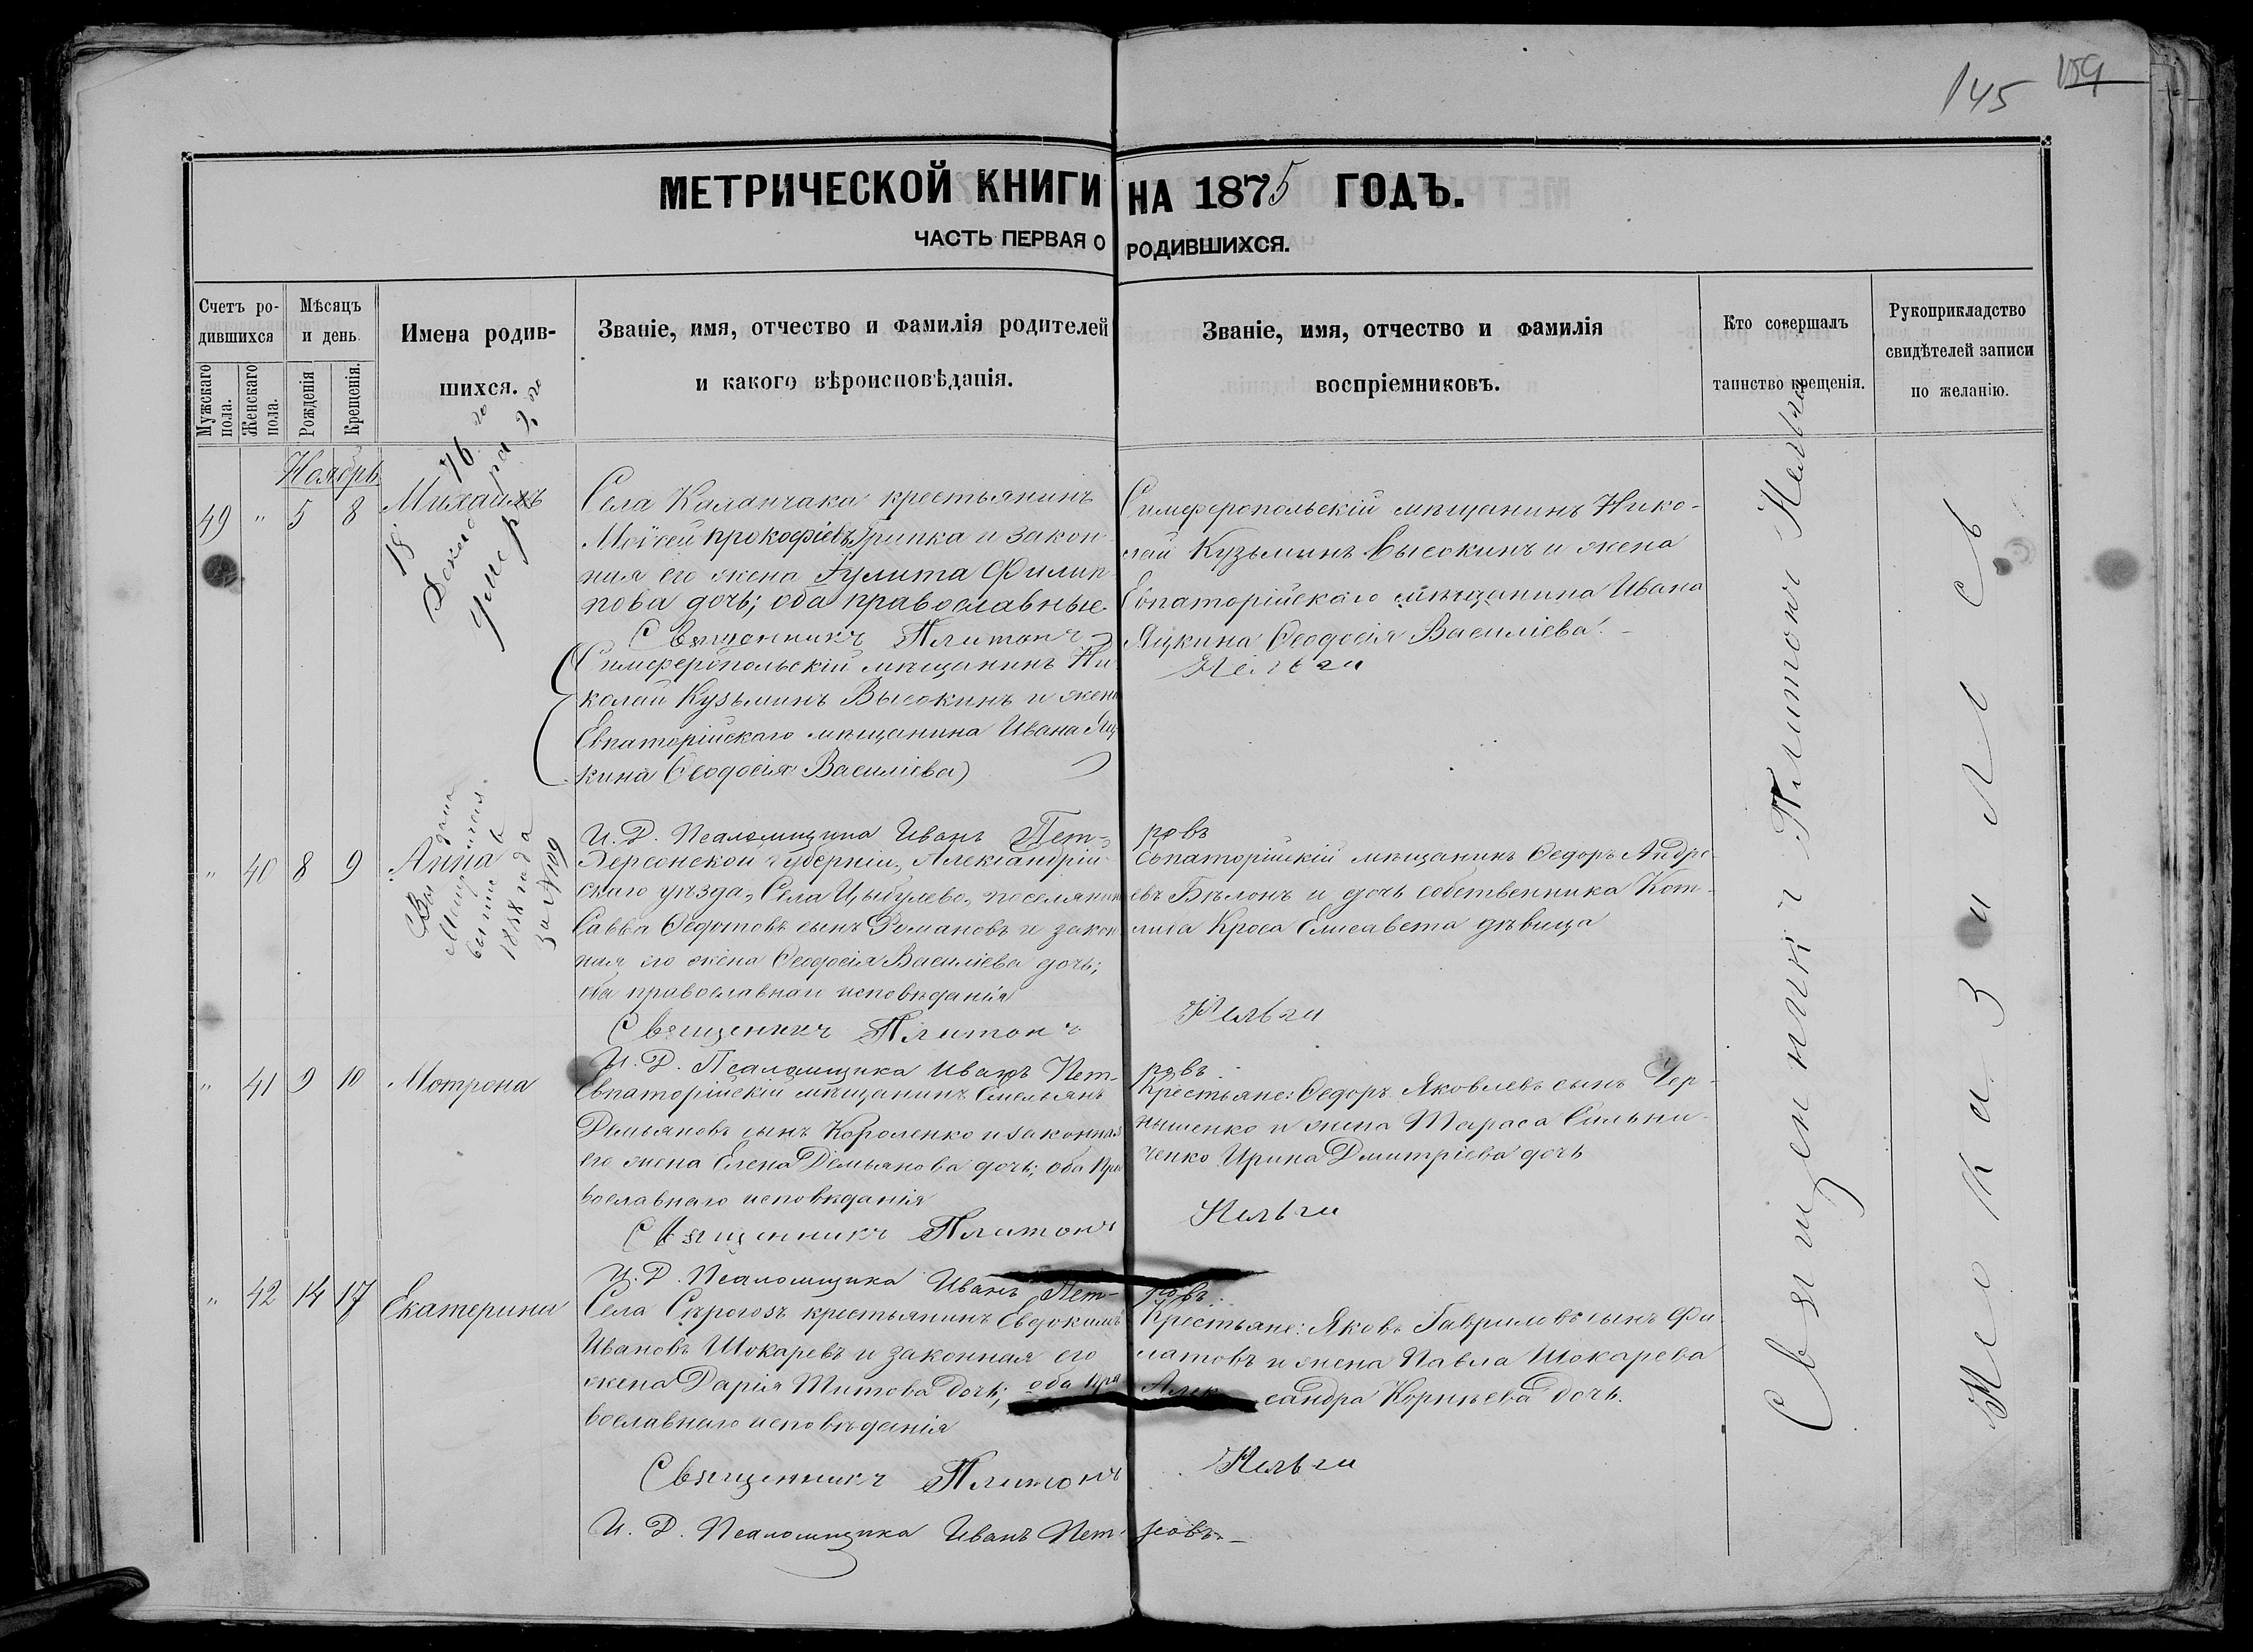 145 159
МЕТРИЧЕСКОЙ КНИГИ НА 1875 ГОДЪ.
ЧАСТЬ ПЕРВАЯ О РОДИВШИХСЯ.
Счетъ ро-
дившихся
Мужскаго пола.
Женскаго пола.
Мѣсяцъ
и день
Рожденія
Крещенія.
Имена родив-
шихся.
Званіе, имя, отчество и фамилія родителей
и какого вѣроисповѣданія.
Званіе, имя, отчество и фамилія
воспріемниковъ.
Кто совершалъ
таинство крещенія.
Рукоприкладство
свидѣтелей записи
по желанію.
Ноябрь
49 " 5 8 Михаилъ
умеръ
18 76
Села Каланчака крестьянинъ
Моѵсей прокофіевъ Грипка и закон
ная его жена Іулита Филип
пова дочь; оба православные.
Священникъ Платонъ
(Симферопольскій мѣщанинъ Ни
колай Кузьминъ Высокинъ и жена
Евпаторійскаго мѣщанина Ивана Яц
кина Ѳеодосія Василіева)
И. Д. Псаломщика Иванъ Пет-
Симферопольскій мѣщанинъ Нико-
лай Кузьминъ Высокинъ и жена
Евпаторійскаго мѣщанина Ивана
Яцкина Ѳеодосія Василіева. -
ровъ
" 40 8 9 Анна
дана
1888 года
за № 109
Херсонской губерніи, Александрій
скаго уѣзда, Села Цыбулево, поселянинъ
Савва Ѳедотовъ сынъ Романовъ и закон
ная его жена Ѳеодосія Василіева дочь;
оба православнаго исповѣданія
Священникъ Платонъ
И. Д. Псаломщика Иванъ Пет-
Евпаторійскій мѣщанинъ Ѳедоръ Андре-
евъ Бѣлонъ и дочь собственника Кот-
либа Кроса Елисавета дѣвица
ровъ
" 41 9 10 Мотрона
Евпаторійскій мѣщанинъ Емельянъ
Демьяновъ сынъ Короленко и законная
его жена Елена Демьянова дочь; оба пра
вославнаго исповѣданія
Священникъ Платонъ
И. Д. Псаломщика Иванъ Пет-
Крестьяне: Ѳедоръ Яковлевъ сынъ Чер-
нышенко и жена Тараса Сильни-
ченко Ирина Дмитріева дочь
ровъ
" 42 14 17 Екатерина
Села Сѣрогозъ крестьянинъ Евдокимъ
Ивановъ Шокаревъ и законная его
жена Дарія Титова дочь; оба пра
вославнаго исповѣданія
Священникъ Платонъ
И. Д. Псаломщика Иванъ Пет-
Крестьяне: Яковъ Гавриловъ сынъ Фи
латовъ и жена Павла Шокарева
Александра Корнѣева дочь.
ровъ. -
Священникъ Платонъ